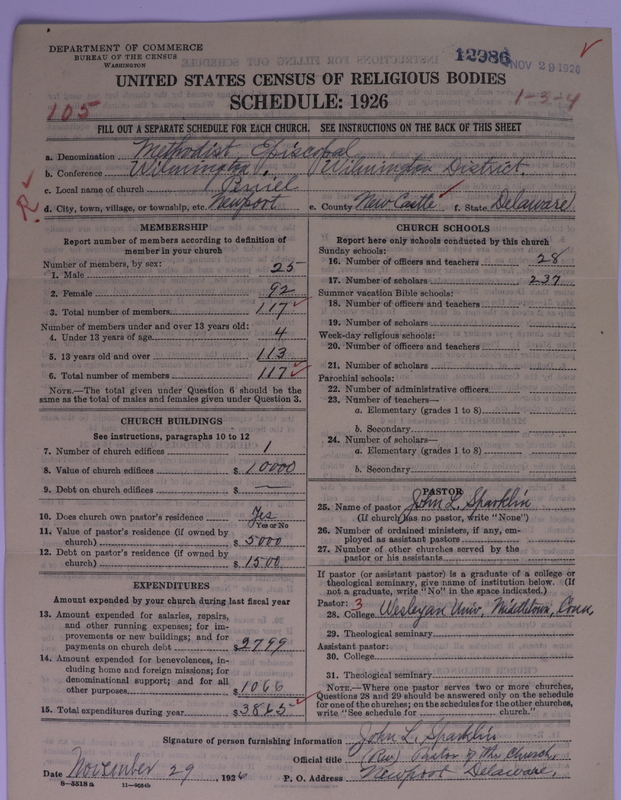 DEPARTMENT OF COMMERCE
BUREAU OF THE CENSUS
WASHINGTON
12986
NOV 29 1926
UNITED STATES CENSUS OF RELIGIOUS BODIES
SCHEDULE: 1926
105
1-3-4
FILL OUT A SEPARATE SCHEDULE FOR EACH CHURCH. SEE INSTRUCTIONS ON THE BACK OF THIS SHEET
a. Denomination Methodist Episcopal
b. Conference Wilmington. Wilmington District.
c. Local name of church Peniel
d. City, town, village, or township, etc. Newport e. County New Castle f. State Delaware
R
MEMBERSHIP
Report number of members according to definition of
member in your church
Number of members, by sex:
1. Male 25
2. Female 92
3. Total number of members 117
Number of members under and over 13 years old:
4. Under 13 years of age 4
5. 13 years old and over 113
6. Total number of members 117
NOTE.—The total given under Question 6 should be
same as the total of males and females given under Question 3.
CHURCH BUILDINGS
See instructions, paragraphs 10 to 12
7. Number of church edifices 1
8. Value of church edifices $ 10000
9. Debt on church edifices $ —
10. Does church own pastor's residence Yes
Yes or No
11. Value of pastor's residence (if owned by
church) $ 5000
12. Debt on pastor's residence (if owned by
church) $ 1500
EXPENDITURES
Amount expended by your church during last fiscal year
13. Amount expended for salaries, repairs,
and other running expenses; for im-
provements or new buildings; and for
payments on church debt $ 2799
14. Amount expended for benevolences, in-
cluding home and foreign missions; for
denominational support; and for all
other purposes $ 1066
15. Total expenditures during year $ 3865
CHURCH SCHOOLS
Report here only schools conducted by this church
Sunday schools:
16. Number of officers and teachers 28
17. Number of scholars 237
Summer vacation Bible schools:
18. Number of officers and teachers
19. Number of scholars
Week-day religious schools:
20. Number of officers and teachers
21. Number of scholars
Parochial schools:
22. Number of administrative officers
23. Number of teachers—
a. Elementary (grades 1 to 8)
b. Secondary
24. Number of scholars—
a. Elementary (grades 1 to 8)
b. Secondary
PASTOR
25. Name of pastor John L. Sparklin
(If church has no pastor, write "None")
26. Number of ordained ministers, if any, em-
ployed as assistant pastors
27. Number of other churches served by the
pastor or his assistants
If pastor (or assistant pastor) is a graduate of a college or
theological seminary, give name of institution below. (If
not a graduate, write "No" in the space indicated.)
Pastor: 3
28. College Wesleyan Univ, Middletown, Conn,
29. Theological seminary
Assistant pastor:
30. College
31. Theological seminary
NOTE.—Where one pastor serves two or more churches,
Questions 28 and 29 should be answered only on the schedule
for one of the churches; on the schedules for the other churches,
write "See schedule for church."
Signature of person furnishing information John L. Sparklin
Official title (Rev) Pastor of the Church,
Date November 29, 1926 P. O. Address Newport Delaware,
8—5518a 11—9664b